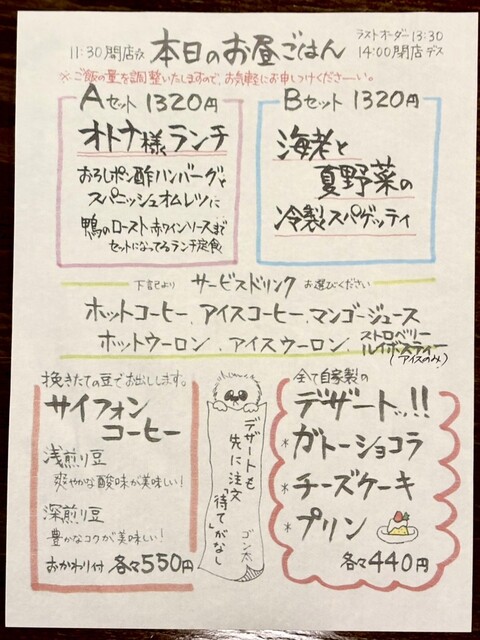 11:30開店デス
本日のお昼ごはん
ラストオーダー13:30
14:00閉店デス
※ご飯の量を調整いたしますので、お気軽にお申しつけくださーい。
Aセット 1320円
オトナ様ランチ
おろしポン酢ハンバーグと
スパニッシュオムレツに
鴨のロースト赤ワインソースまで
セットになってるランチ定食
Bセット 1320円
海老と
夏野菜の
冷製スパゲッティ
下記より サービスドリンク お選びください
ホットコーヒー、アイスコーヒー、マンゴージュース
ホットウーロン、アイスウーロン、ストロベリー
ルイボスティー
(アイスのみ)
挽きたての豆でお出しします。
サイフォン
コーヒー
浅煎り豆
爽やかな酸味が美味しい!
深煎り豆
豊かなコクが美味しい!
おかわり付 各々550円
デザートも
先に注文
「待て」がなし
ゴン太
全て自家製の
デザートッ!!
*ガトーショコラ
*チーズケーキ
*プリン
各々440円